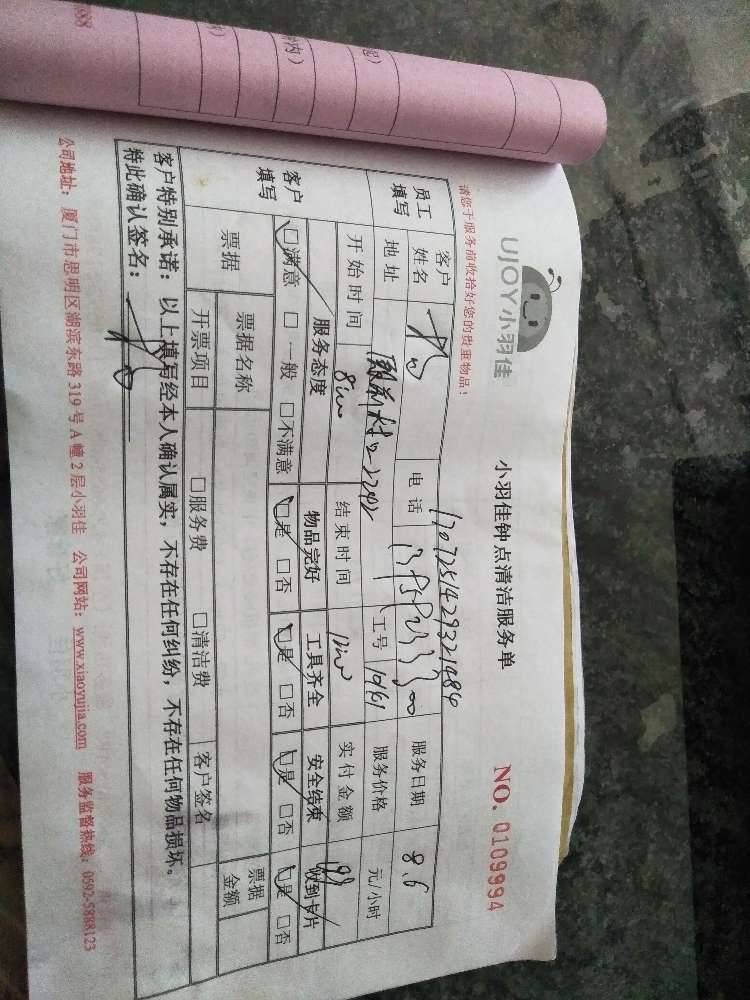 UJOY小羽佳
小羽佳钟点清洁服务单
NO. 0109994
请您于服务前收拾好您的贵重物品！
1707251429321484
员工填写 客户姓名 电话 服务日期 8.6
地址 工号 服务价格 元/小时
客户填写 开始时间 结束时间 实付金额
服务态度 物品完好 工具齐全 安全结束 收到卡片
□满意 □一般 □不满意 □是 □否 □是 □否 □是 □否 □是 □否
票据 票据名称 票据金额
开票项目 □服务费 □清洁费 客户签名
客户特别承诺：以上填写经本人确认属实，不存在任何纠纷，不存在任何物品损坏。
特此确认签名：
公司地址：厦门市思明区湖滨东路319号A幢2层小羽佳 公司网站：www.xiaoyujia.com 服务监督热线：0592-5888123